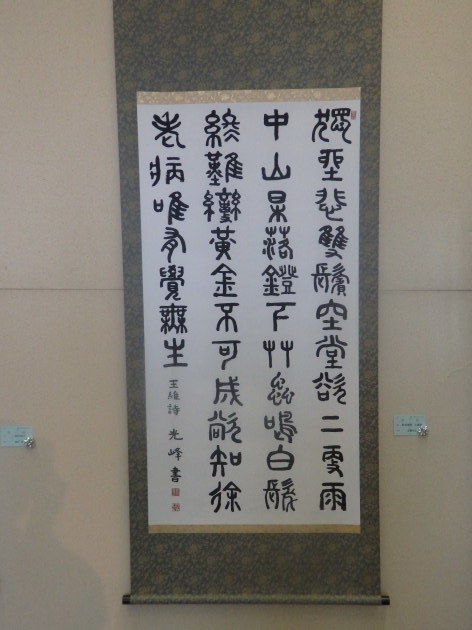 獨坐悲雙鬢空堂欲二更雨
中山果落鐙下艸蟲鳴白髮
終難變黃金不可成欲知除
老病唯有覺無生
王維詩 光峰書